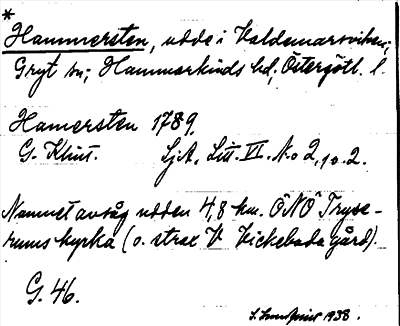 *
Hammersten, udde i Valdemarsviken;
Gryt sn; Hammarkinds hd; Östergötl. l.
Hamersten 1789.
G. Klint. SjA. Litt. VI. No 2, 10.2.
Namnet avsåg udden 4,8 km. ÖNÖ Tryse-
rums kyrka (o. strax V Vickebada Gård).
G. 46.
1938.